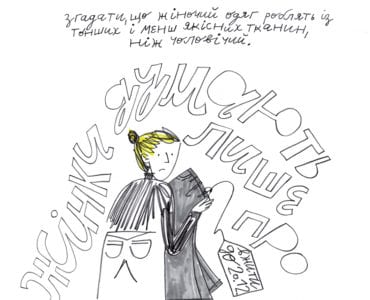 згадати, що жіночий одяг роблять із
тонших і менш якісних тканин,
ніж чоловічий.
жінки думають
лише про
вжити
до
20.12